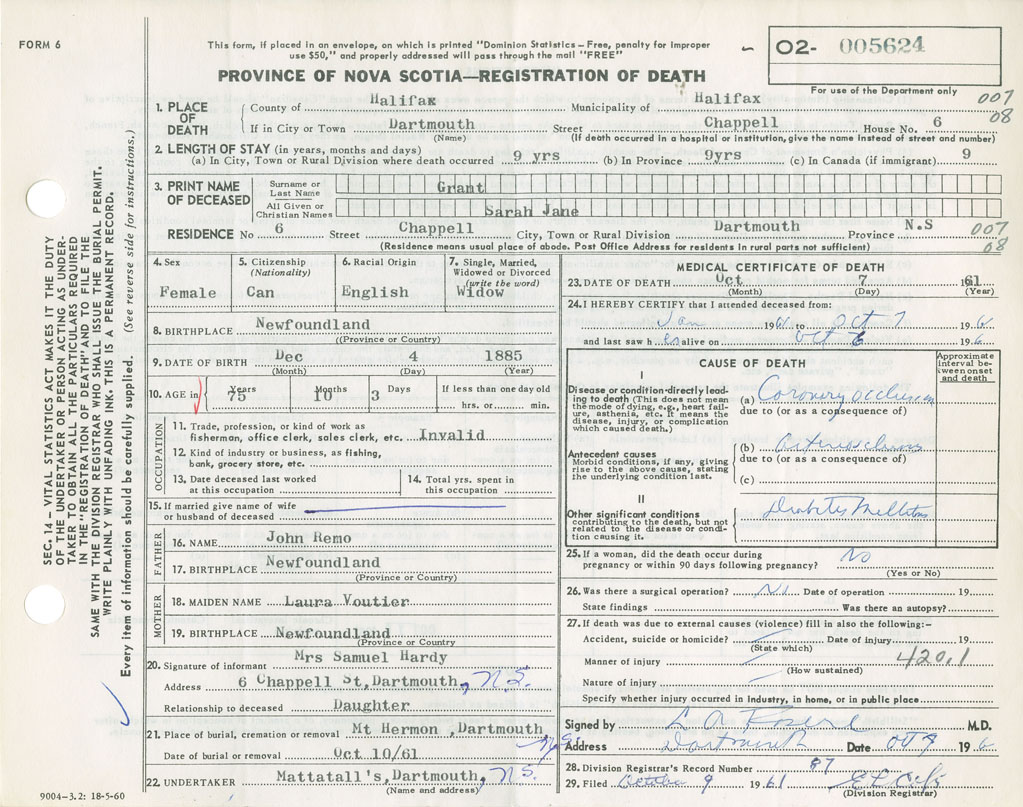 FORM 6
This form, if placed in an envelope, on which is printed "Dominion Statistics – Free, penalty for improper
use $50," and properly addressed will pass through the mail "FREE"
02- 005624
For use of the Department only
PROVINCE OF NOVA SCOTIA—REGISTRATION OF DEATH
007
08
1. PLACE OF DEATH
County of Halifax Municipality of Halifax
If in City or Town Dartmouth Street Chappell House No. 6
(Name) (If death occurred in a hospital or institution, give the name instead of street and number)
2. LENGTH OF STAY (in years, months and days)
(a) In City, Town or Rural Division where death occurred 9 yrs (b) In Province 9yrs (c) In Canada (if immigrant) 9
3. PRINT NAME OF DECEASED
Surname or Last Name Grant
All Given or Christian Names Sarah Jane
RESIDENCE No 6 Street Chappell City, Town or Rural Division Dartmouth Province N.S
007
08
(Residence means usual place of abode. Post Office Address for residents in rural parts not sufficient)
4. Sex
Female
5. Citizenship
(Nationality)
Can
6. Racial Origin
English
7. Single, Married,
Widowed or Divorced
(write the word)
Widow
8. BIRTHPLACE Newfoundland
(Province or Country)
9. DATE OF BIRTH Dec 4 1885
(Month) (Day) (Year)
10. AGE in Years Months Days If less than one day old
75 10 3 hrs. or min.
OCCUPATION
11. Trade, profession, or kind of work as
fisherman, office clerk, sales clerk, etc. Invalid
12. Kind of industry or business, as fishing,
bank, grocery store, etc.
13. Date deceased last worked
at this occupation
14. Total yrs. spent in
this occupation
15. If married give name of wife
or husband of deceased
FATHER
16. NAME John Remo
17. BIRTHPLACE Newfoundland
(Province or Country)
MOTHER
18. MAIDEN NAME Laura Voutier
19. BIRTHPLACE Newfoundland
(Province or Country
20. Signature of informant Mrs Samuel Hardy
Address 6 Chappell St,Dartmouth, N.S.
Relationship to deceased Daughter
21. Place of burial, cremation or removal Mt Hermon ,Dartmouth
N.S
Date of burial or removal Oct 10/61
22. UNDERTAKER Mattatall's,Dartmouth, N.S.
(Name and address)
MEDICAL CERTIFICATE OF DEATH
23. DATE OF DEATH Oct 7 1961
(Month) (Day) (Year)
24. I HEREBY CERTIFY that I attended deceased from:
Jan 1961 to Oct 7 1961
and last saw her alive on Oct 6 1961
CAUSE OF DEATH
Approximate
interval be-
tween onset
and death
I
Disease or condition directly lead-
ing to death (This does not mean
the mode of dying, e.g., heart fail-
ure, asthenia, etc. It means the
disease, injury, or complication
which caused death.)
(a) Coronary occlusion
due to (or as a consequence of)
Antecedent causes
Morbid conditions, if any, giving
rise to the above cause, stating
the underlying condition last.
(b) arteriosclerosis
due to (or as a consequence of)
(c)
II
Other significant conditions
contributing to the death, but not
related to the disease or condi-
tion causing it.
Diabetes Mellitus
25. If a woman, did the death occur during
pregnancy or within 90 days following pregnancy? No
(Yes or No)
26. Was there a surgical operation? No Date of operation 19
State findings Was there an autopsy?
27. If death was due to external causes (violence) fill in also the following:–
Accident, suicide or homicide? Date of injury 19
(State which)
Manner of injury 420.1
(How sustained)
Nature of injury
Specify whether injury occurred in industry, in home, or in public place
Signed by M.D.
Address Dartmouth Date Oct 9 196
28. Division Registrar's Record Number 87
29. Filed October 9 1961
(Division Registrar)
SEC. 14 – VITAL STATISTICS ACT MAKES IT THE DUTY
OF THE UNDERTAKER OR PERSON ACTING AS UNDER-
TAKER TO OBTAIN ALL THE PARTICULARS REQUIRED
IN THE "REGISTRATION OF DEATH" AND TO FILE THE
SAME WITH THE DIVISION REGISTRAR WHO SHALL ISSUE THE BURIAL PERMIT.
WRITE PLAINLY WITH UNFADING INK. THIS IS A PERMANENT RECORD.
Every item of information should be carefully supplied. (See reverse side for instructions.)
9004–3.2: 18-5-60